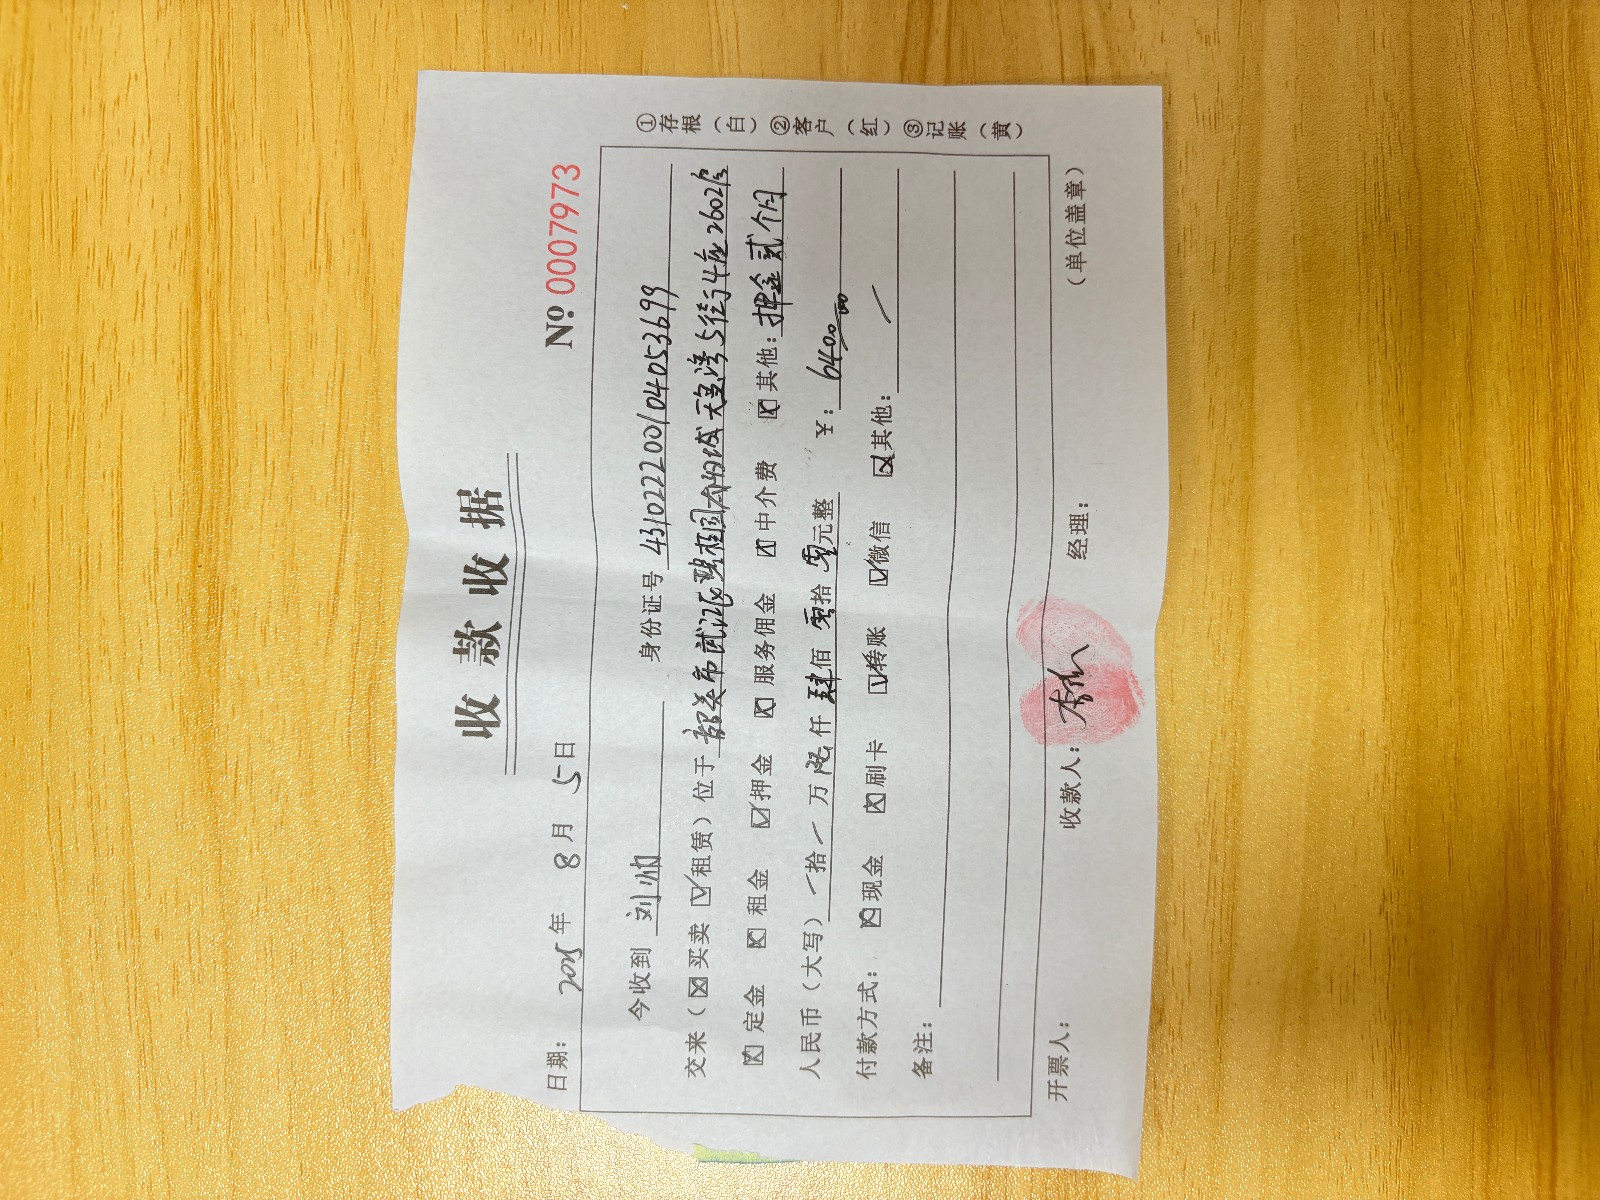 收款收据
日期： 2025年 8月 5日 № 0007973
今收到 刘帅 身份证号 431022200104053699
交来（☒买卖 ☑租赁）位于 韶关市武江区碧桂园太阳城天玺湾5街4座2602房
☒定金 ☒租金 ☑押金 ☒服务佣金 ☒中介费 ☒其他：押金贰个月
人民币（大写）/拾/万陆仟肆佰零拾零元整 ￥：6400.00
付款方式：☒现金 ☒刷卡 ☑转账 ☑微信 ☒其他： /
备注：
开票人： 收款人： 经理： （单位盖章）
①存根（白）②客户（红）③记账（黄）